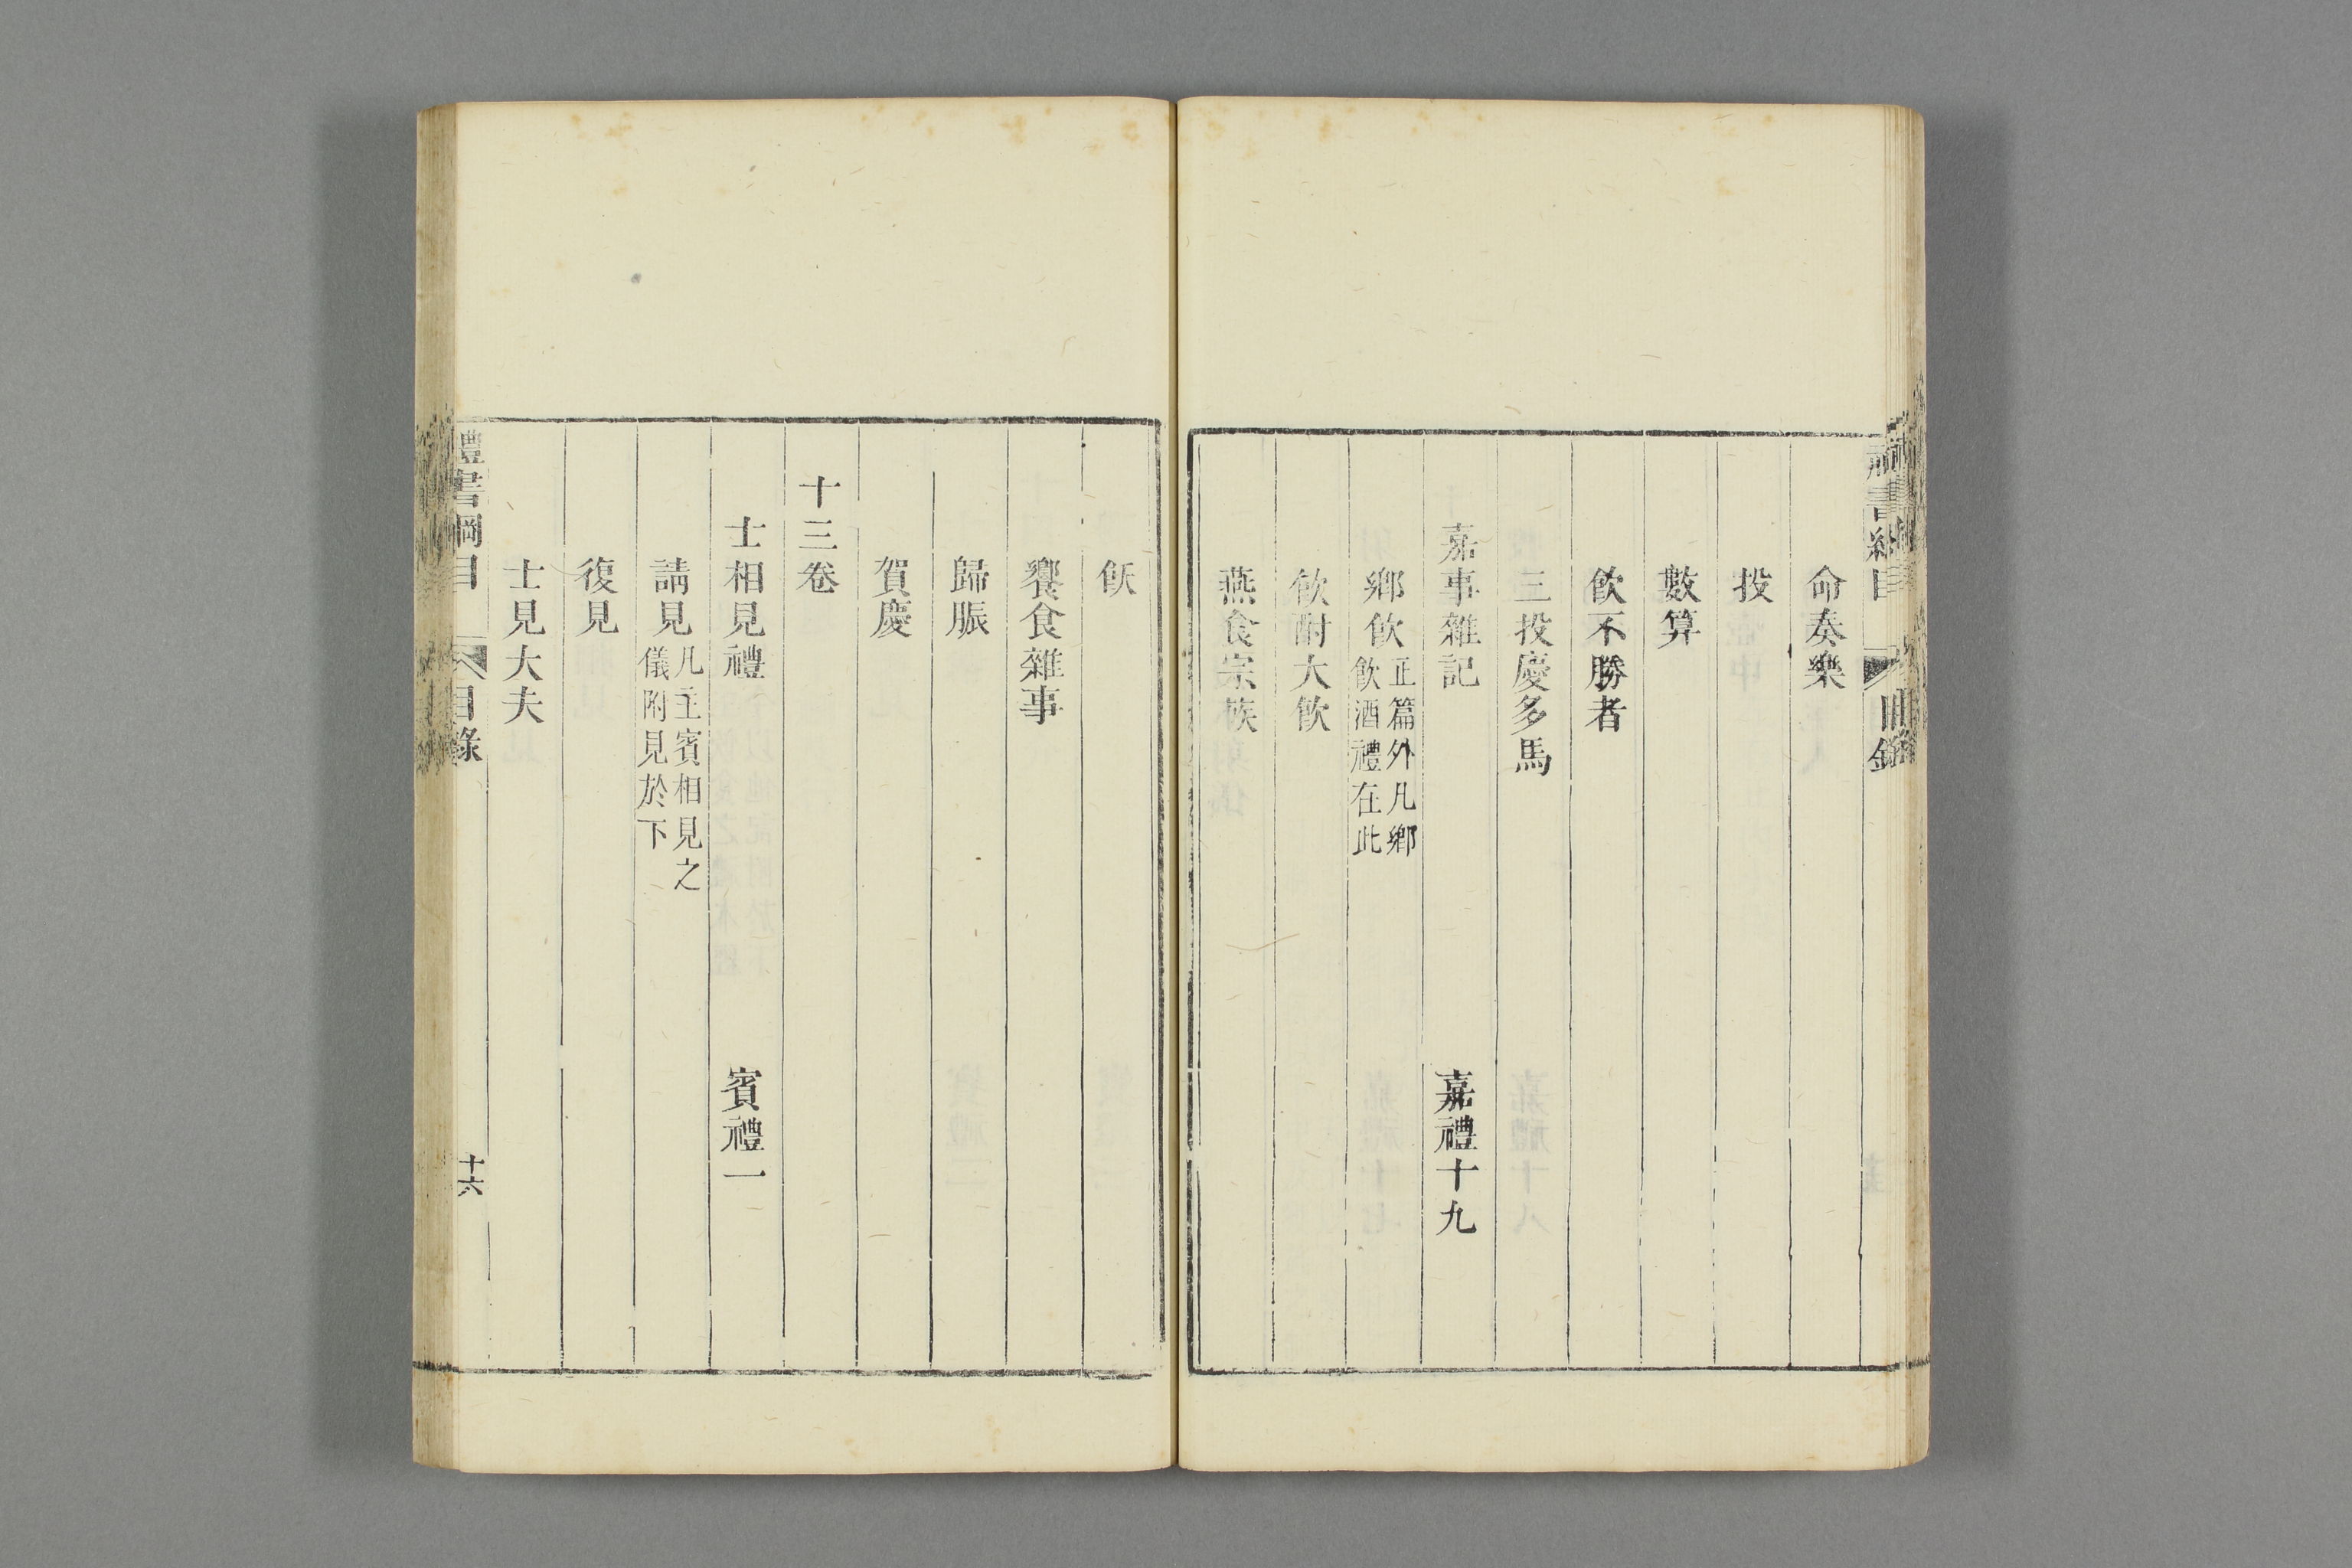 命奏樂
投
數算
飲不勝者
三投慶多馬
嘉事雜記 嘉禮十九
鄉飲 正篇外凡鄉
飲酒禮在此
飲酎大飲
燕食宗族
飫
饗食雜事
歸脤
賀慶
十三卷
士相見禮 賓禮一
請見 凡主賓相見之
儀附見於下
復見
士見大夫
禮書綱目 目錄 十六